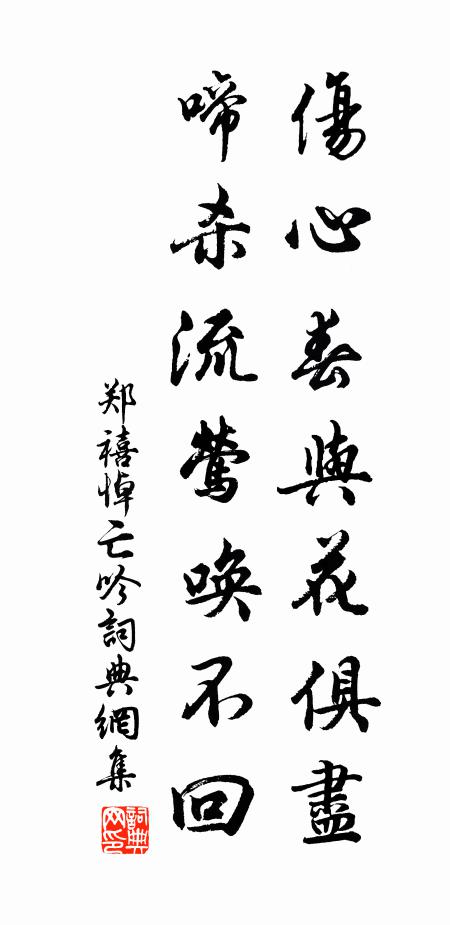 傷心春與花俱盡
啼杀流鶯唤不回
郑禧悼亡吟詞典網集
詞典
网印